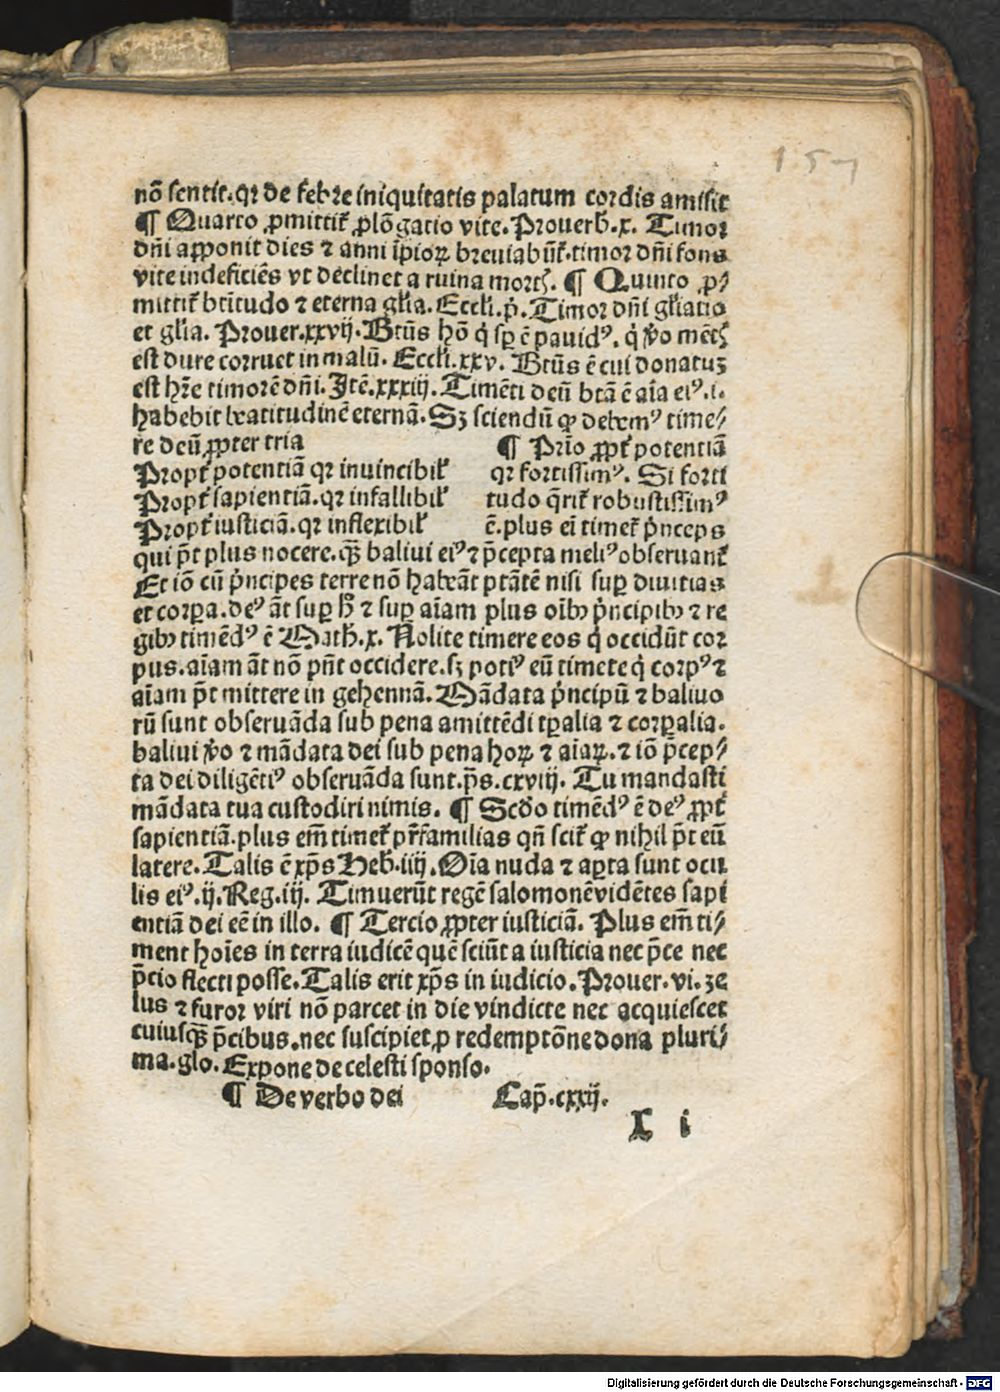 157
nō sentit.qꝛ de febꝛe iniquitatis palatum cordis amisit
¶ Quarto ꝓmittit᷑ ꝓlōgatio vite. Prouerb̄.x. Timoꝛ
dn̄i apponit dies ⁊ anni īpioꝝ bꝛeuiabūt᷑.timoꝛ dn̄i fons
vite indeficiēs vt declinet a ruina moꝛtꝭ. ¶ Quinto ꝓ⸗
mittit᷑ btītudo ⁊ eterna gl̄ia. Eccli.ṗ. Timoꝛ dn̄i gl̄iatio
et gl̄ia. Prouer.xxvij. Btūs hō q̇ sꝑ ē pauidꝰ. q̇ ꝟo mētꝭ
est dure coꝛruet in malū. Eccli.xxv. Btūs ē cui donatuꝫ
est hr̄e timoꝛē dn̄i. Itē.xxxiij. Timēti deū btā ē aīa eiꝰ.i.
habebit beatitudinē eternā. Sꝫ sciendū ꝙ debemꝰ time⸗
re deū ꝓpter tria
Propt᷑ potentiā qꝛ inuincibil᷑
Propt᷑ sapientiā.qꝛ infallibil᷑
Propt᷑ iusticiā.qꝛ inflexibil᷑
¶ Prīo ꝓpt᷑ potentiā
qꝛ foꝛtissimꝰ. Si foꝛti
tudo q̄rit᷑ robustissimꝰ
ē.plus ei timet᷑ p̍nceps
qui pōt plus nocere.qꝫ̄ baliui eiꝰ ⁊ p̄cepta meliꝰ obseruant᷑
Et iō cū p̍ncipes terre nō habeāt ptātē nisi suꝑ diuitias
et coꝛꝑa.deꝰ āt suꝑ h̄ ⁊ suꝑ aīam plus oībꝫ p̍ncipibꝫ ⁊ re
gibꝫ timēdꝰ ē Math̄.x. Nolite timere eos q̇ occidūt coꝛ
pus.aīam āt nō pn̄t occidere.sꝫ potiꝰ eū timete q̇ coꝛpꝰ ⁊
aīam pōt mittere in gehennā. Mādata p̍ncipū ⁊ baliuo
rū sunt obseruāda sub pena amittēdi tꝑalia ⁊ coꝛꝑalia.
baliui ꝟo ⁊ mādata dei sub pena hoꝝ ⁊ aīaꝝ.⁊ iō p̄cep⸗
ta dei diligētiꝰ obseruāda sunt.p̄s.cxviij. Tu mandasti
mādata tua custodiri nimis. ¶ Scd̄o timēdꝰ ē deꝰ ꝓpt᷑
sapientiā.plus em̄ timet᷑ pr̄familias qn̄ scit᷑ ꝙ nihil pōt eū
latere. Talis ē xp̄s Heb̄.iiij. Oīa nuda ⁊ aꝑta sunt ocu
lis eiꝰ.ij.Reg.iij. Timuerūt regē salomonē vidētes sapi
entiā dei eē in illo. ¶ Tercio ꝓpter iusticiā. Plus em̄ ti⸗
ment hoīes in terra iudicē quē sciūt a iusticia nec p̄ce nec
p̄cio flecti posse. Talis erit xp̄s in iudicio. Prouer.vi.ze
lus ⁊ furoꝛ viri nō parcet in die vindicte nec acquiescet
cuiusqꝫ̄ p̄cibus.nec suscipiet ꝓ redemptōne dona pluri⸗
ma.glo. Expone de celesti sponso.
¶ De verbo dei Cap̄.cxxij.
X i
Digitalisierung gefördert durch die Deutsche Forschungsgemeinschaft - DFG